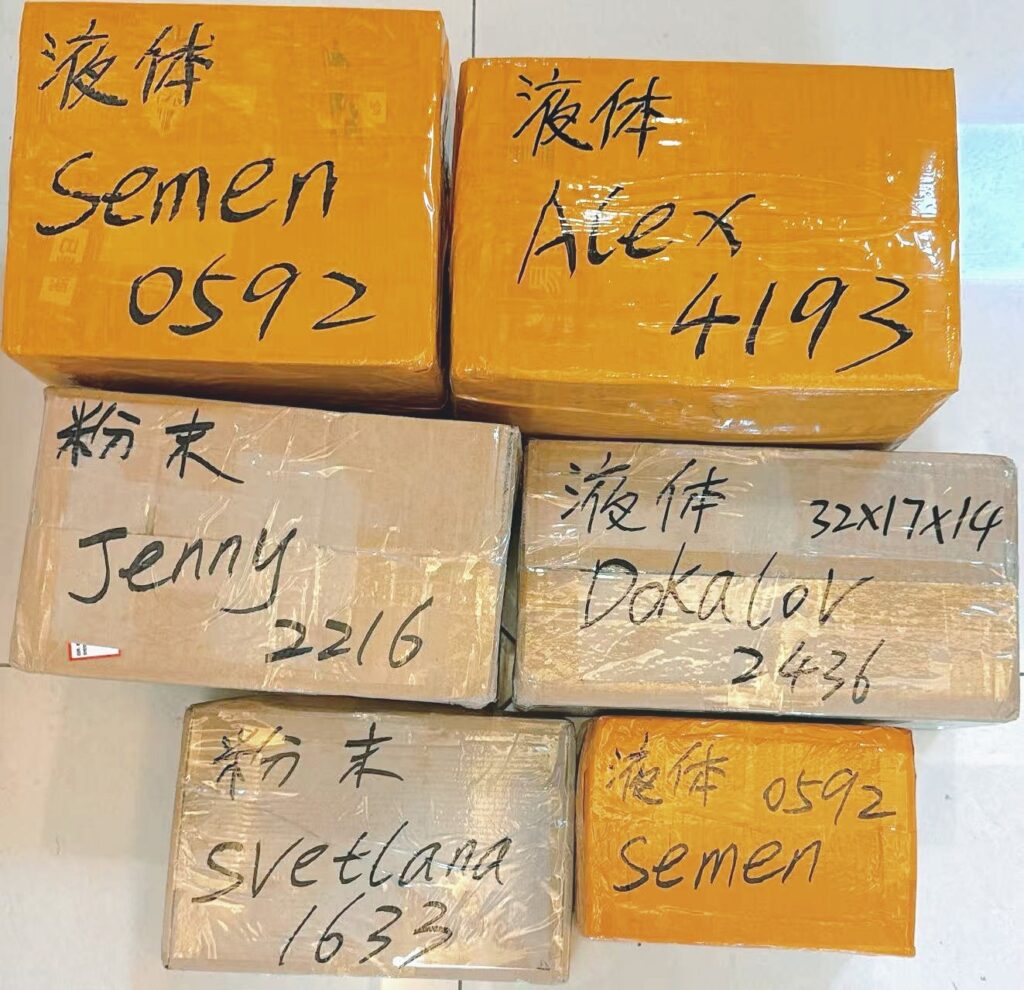 液体
Semen
0592
液体
Alex
4193
粉末
Jenny
2216
液体 32x17x14
Dokalov
2436
粉末
Svetlana
1633
液体 0592
Semen